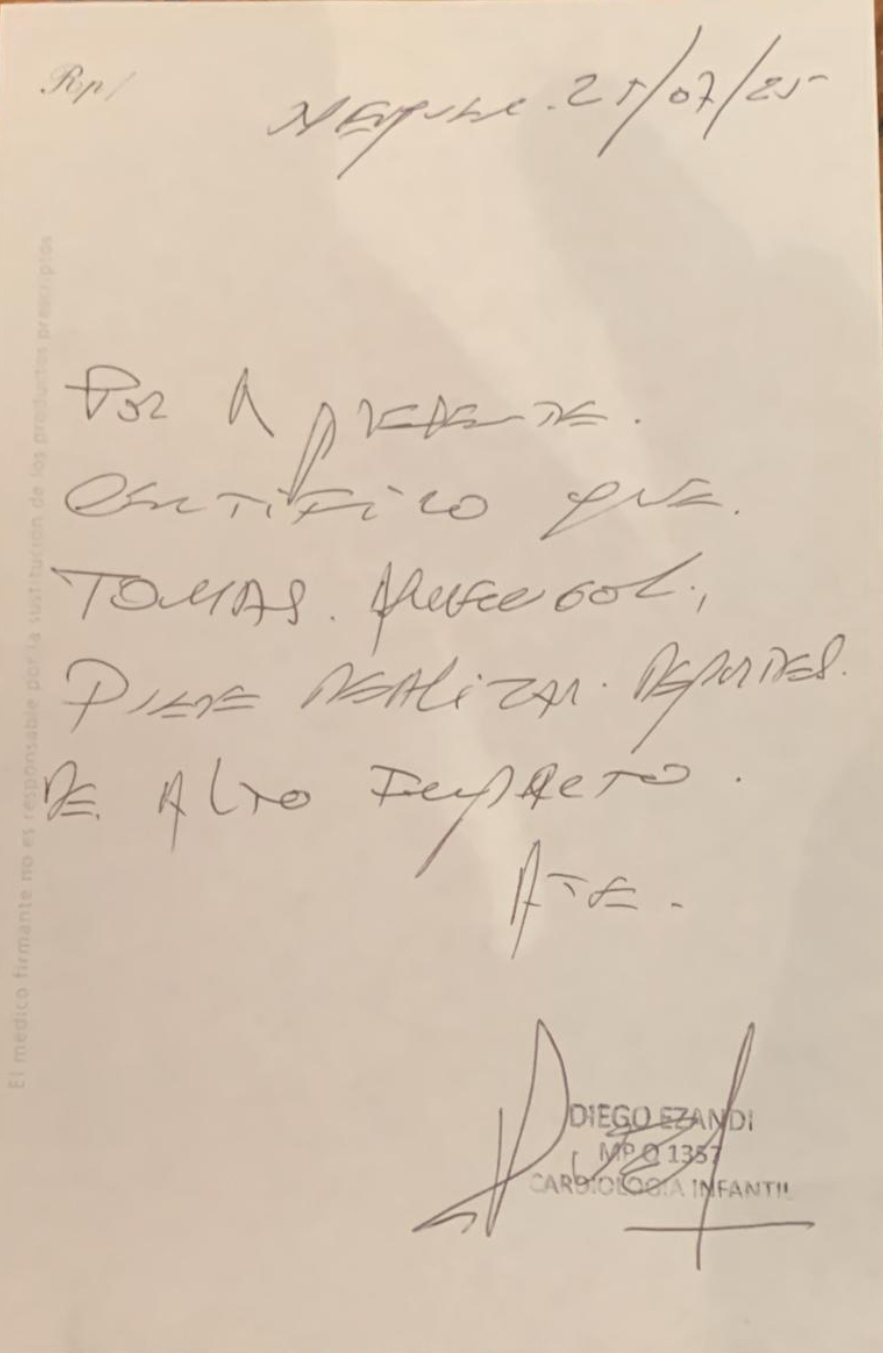 Rp/
Neuquén. 21/07/25
Por la presente.
Certifico que.
TOMAS.
Puede realizar. deportes.
de. Alto Impacto.
Ate.
DIEGO EZANDI
MP Q 1357
CARDIOLOGIA INFANTIL
El médico firmante no es responsable por la sustitución de los productos prescriptos